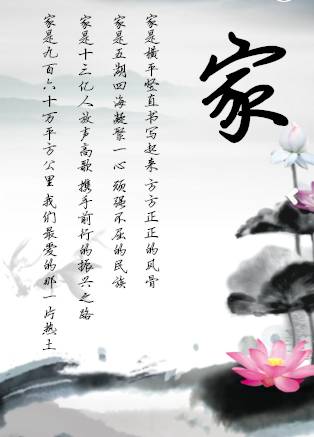 家
家是横平竖直书写起来方方正正的风骨
家是五湖四海凝聚一心顽强不屈的民族
家是十三亿人放声高歌携手前行的振兴之路
家是九百六十万平方公里我们最爱的那一片热土